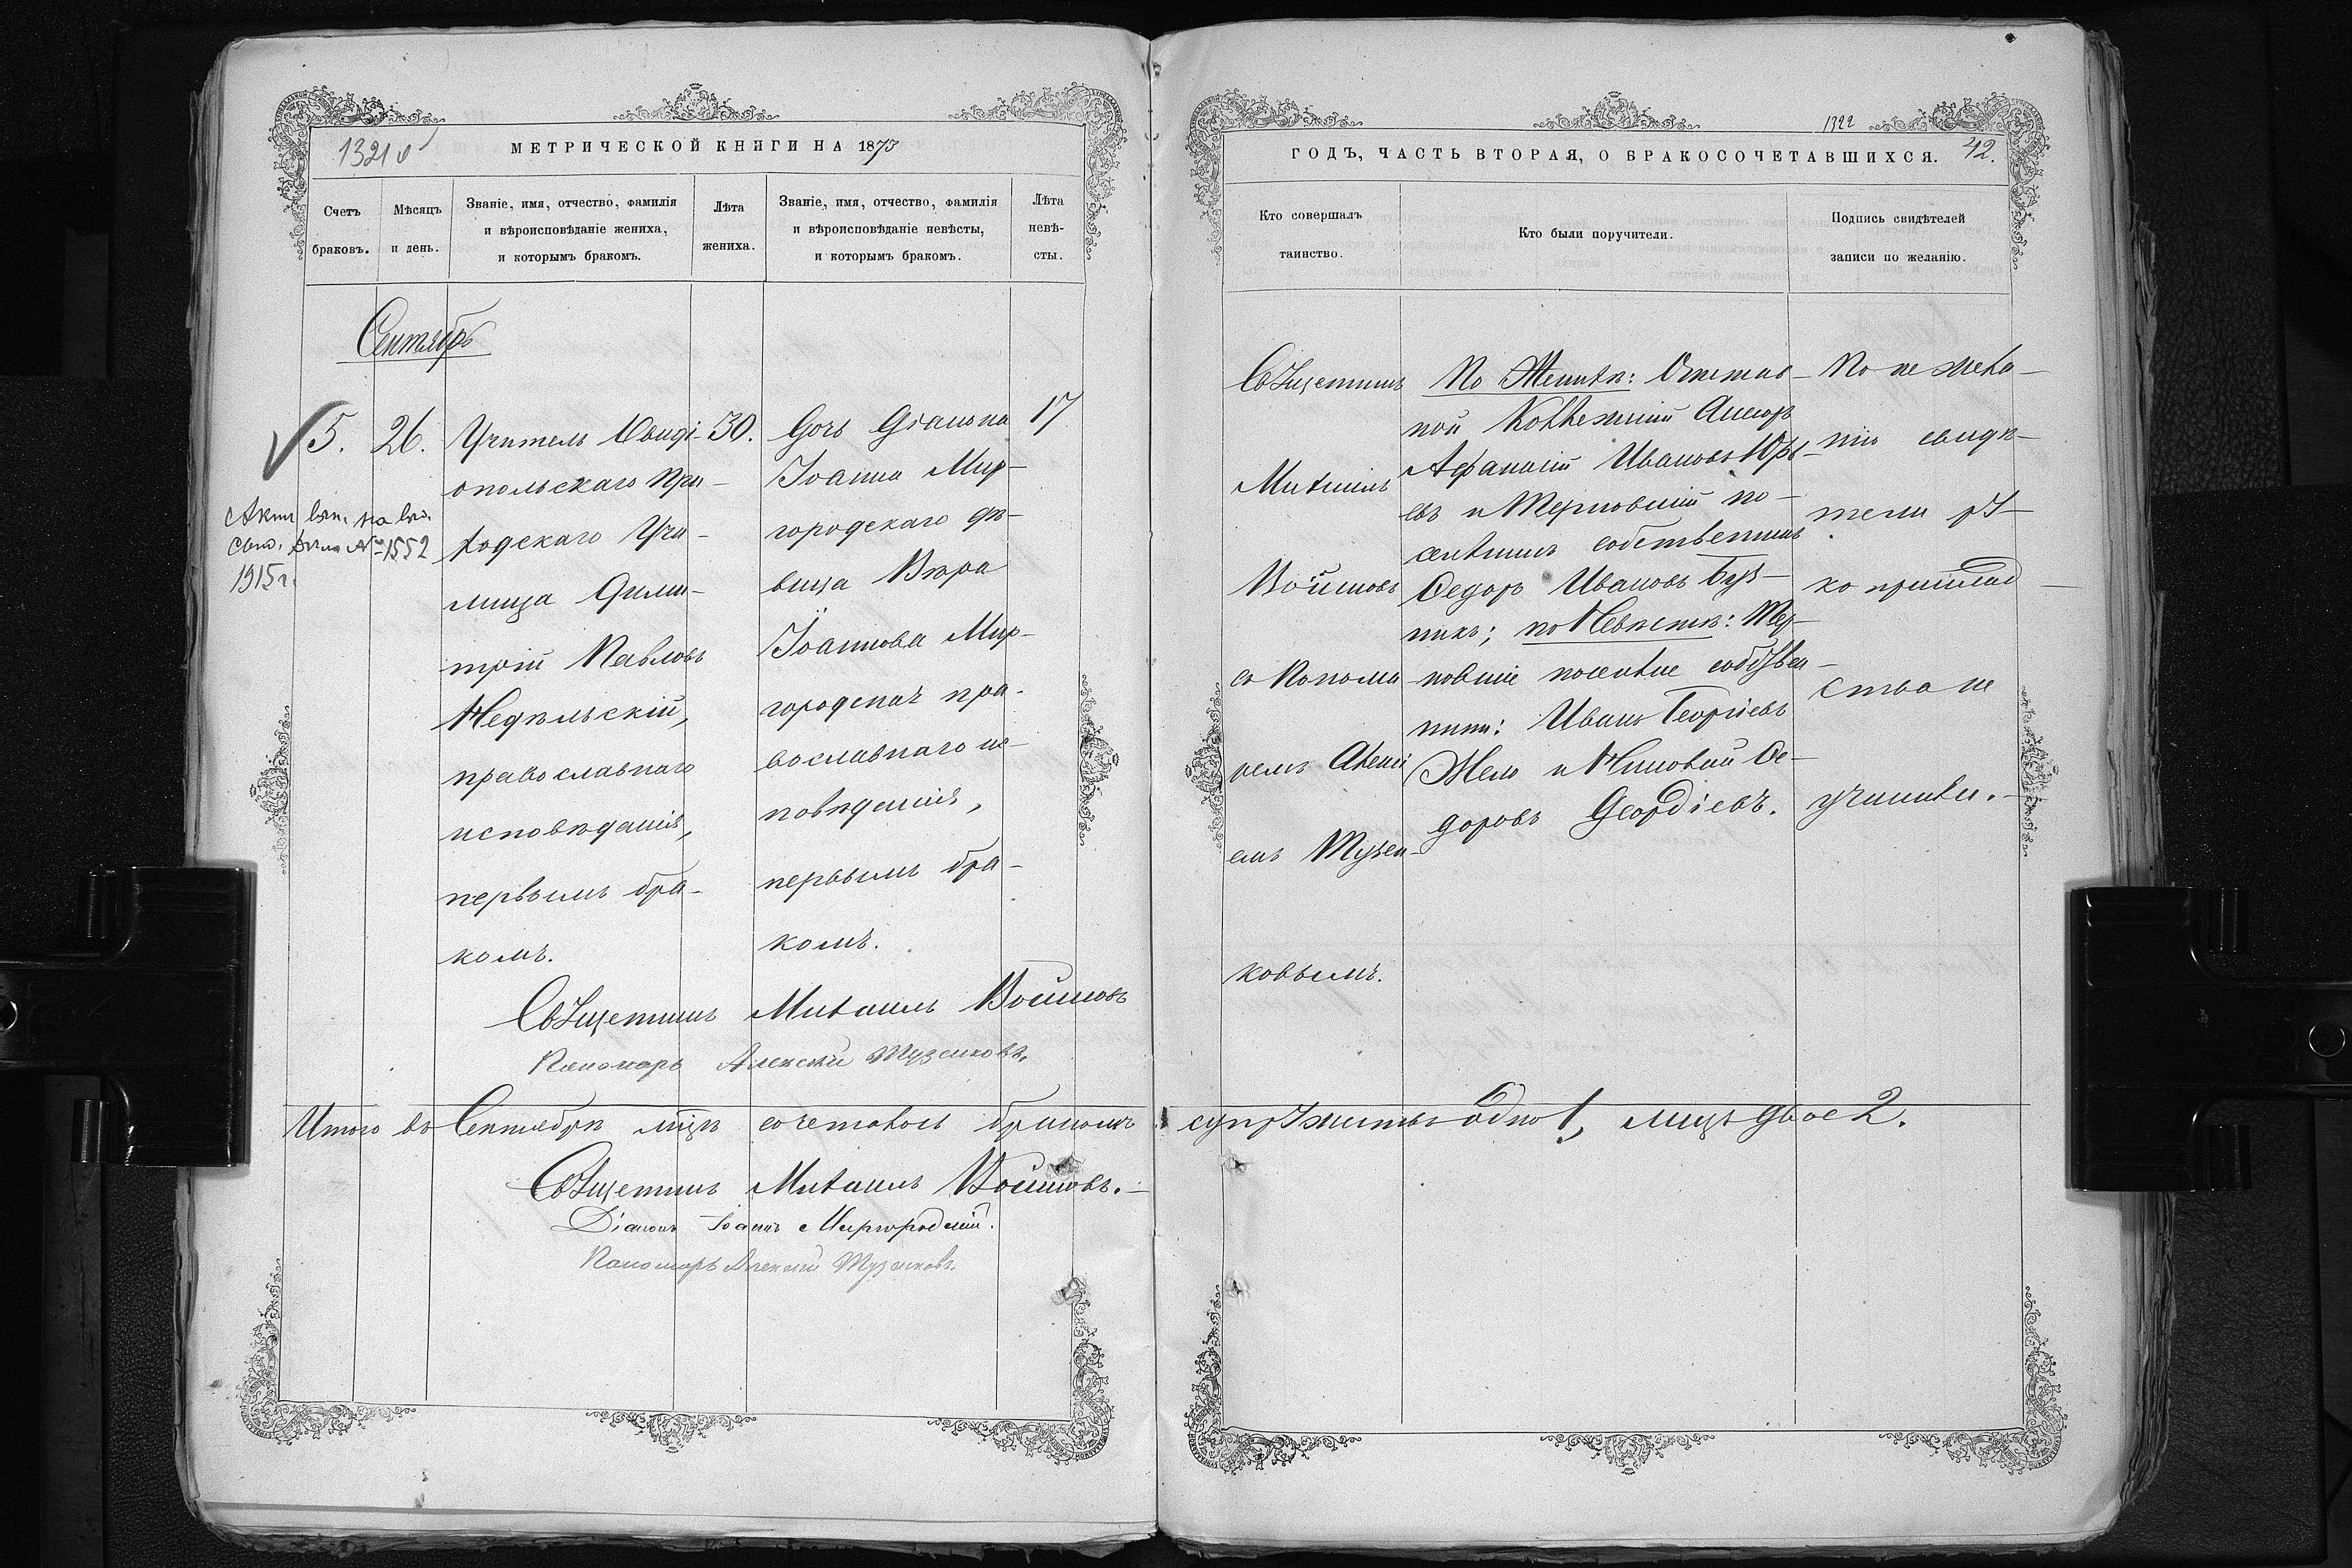 1321 v
МЕТРИЧЕСКОЙ КНИГИ НА 1873
Счетъ браковъ.
Мѣсяцъ и день.
Званіе, имя, отчество, фамилія
и вѣроисповѣданіе жениха,
и которымъ бракомъ.
Лѣта жениха.
Званіе, имя, отчество, фамилія
и вѣроисповѣданіе невѣсты,
и которымъ бракомъ.
Лѣта
невѣ-
сты.
Сентябрь
5.
26.
Учитель Овиді-
опольскаго При-
ходскаго Учи-
лища Дими-
трій Павловъ
Недѣльскій,
православнаго
исповѣданія,
первымъ бра-
комъ.
30.
Дочь Діакона
Іоанна Мир-
городскаго дѣ-
вица Вѣра
Іоаннова Мир-
городская пра-
вославнаго ис-
повѣданія,
первымъ бра-
комъ.
17
№ 1552
1915 г.
Священникъ Михаилъ Войновъ
Пономарь Алексѣй Музенковъ.
Итого въ Сентябрѣ мцѣ сочеталось бракомъ
Священникъ Михаилъ Войновъ.
Діаконъ Іоаннъ Миргородскій.
Пономарь Алексѣй Музенковъ.
1322
ГОДЪ, ЧАСТЬ ВТОРАЯ, О БРАКОСОЧЕТАВШИХСЯ.
42.
Кто совершалъ
таинство.
Кто были поручители.
Подпись свидѣтелей
записи по желанію.
Священникъ
Михаилъ
Войновъ
съ Понома
ремъ Алексі
емъ Музен-
ковымъ.
По Женихѣ: Отстав-
ной Коллежскій Ассесоръ
Афанасій Ивановъ Юрь-
евъ и Терновскій по-
селянинъ собственникъ
Федоръ Ивановъ
по Невѣстѣ: Тер-
новскіе поселяне собствен-
ники: Иванъ Георгіевъ
Жело и Николай Ѳе-
доровъ
По не жела-
нію свидѣ-
тели ря-
ко приклад
ства не
учинили.
супружествъ одно 1, лицъ двое 2.